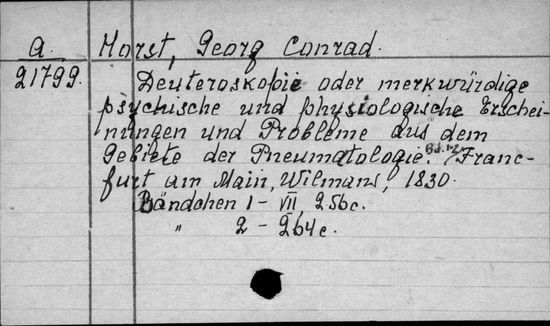 A. Horst, Georg Conrad.
21799. Deuteroskopie oder merkwürdige
psychische und physiologische Erschei-
nungen und Probleme aus dem
Gebiete der Pneumatologie. Bd. 1-2. Franc-
furt am Main, Wilmans, 1830.
Bändchen 1 - VII, 256 c.
" 2 - 264 c.